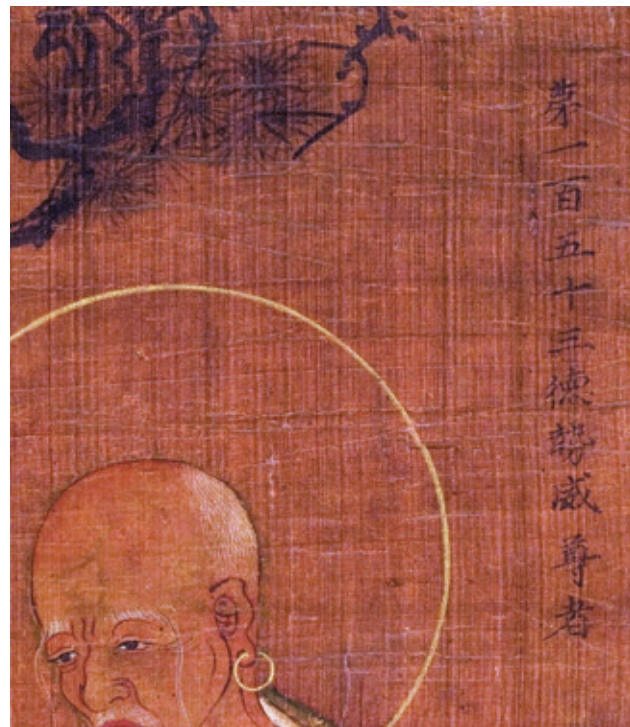 第一百五十三德勢威尊者